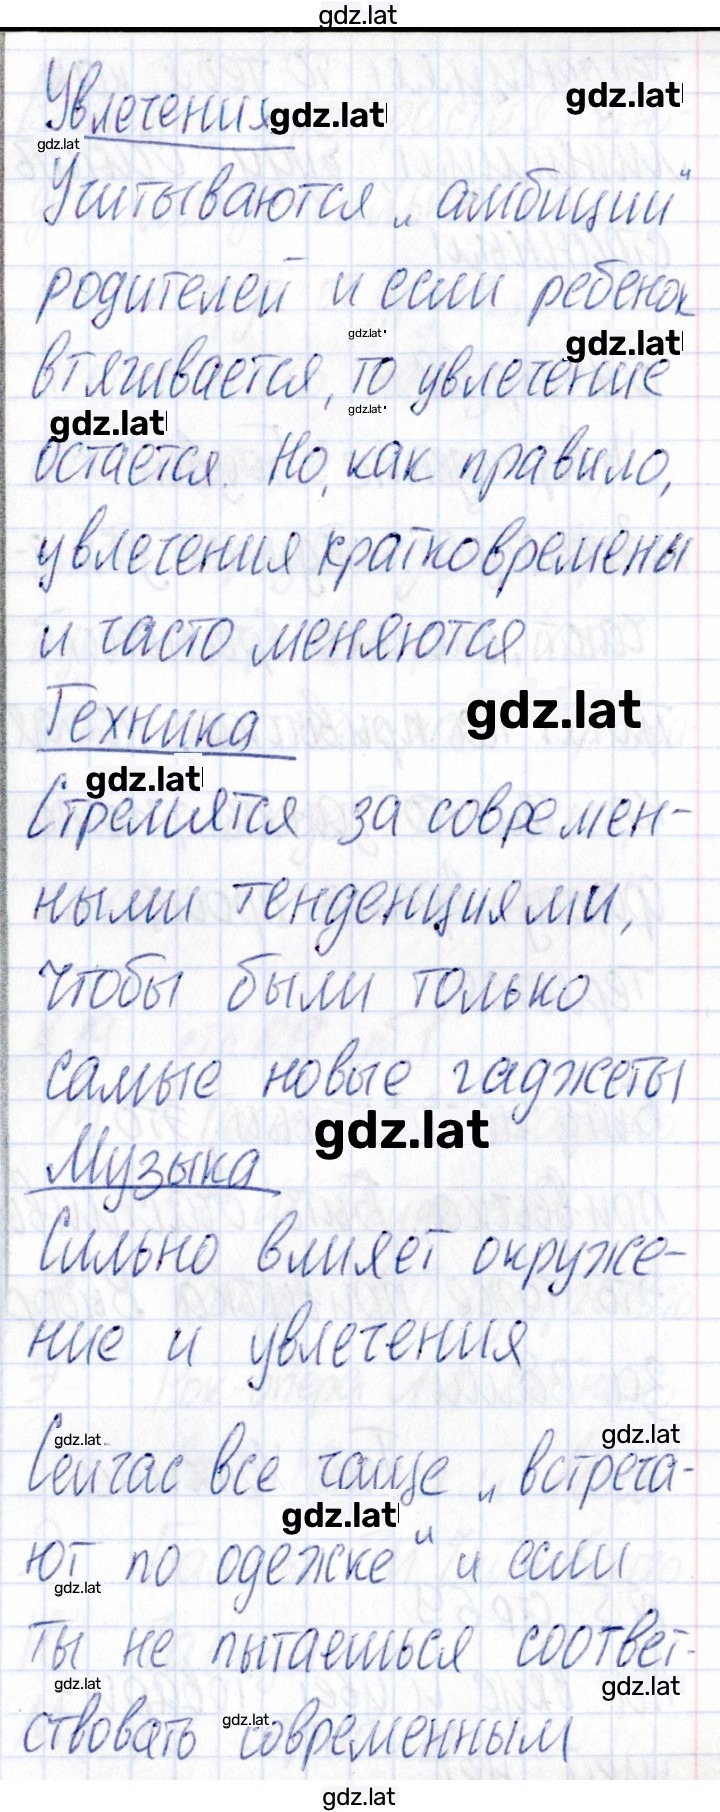 gdz.lat
Увлечения gdz.lat gdz.lat
gdz.lat
Учитываются „амбиции"
родителей и если ребенок
gdz.lat gdz.lat
втягивается, то увлечение
gdz.lat gdz.lat
остается. Но, как правило,
увлечения кратковремены
и часто меняются
Техника gdz.lat
gdz.lat
Стремятся за современ-
ными тенденциями,
чтобы были только
самые новые гаджеты
gdz.lat
Музыка
Сильно влияет окруже-
ние и увлечения
gdz.lat gdz.lat
Сейчас все чаще „встреча-
gdz.lat
ют по одежке" и если
gdz.lat
ты не пытаешься соответ-
gdz.lat gdz.lat
gdz.lat
ствовать современным
gdz.lat